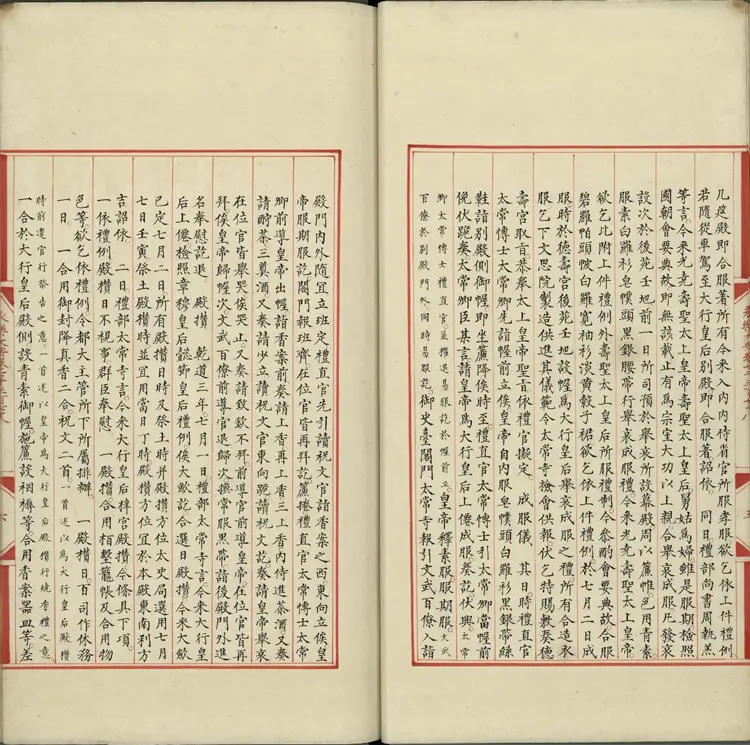 几筵殿即合服著所有令來入內內侍省官所服孝服欲乞依上件禮例
若隨從車駕至大行皇后別殿即合服著詔依 同日禮部尚書周執羔
等言今來光堯壽聖太上皇帝壽聖太上皇后舅姑為婦雖是服期檢照
國朝會要典故即無該載止有為宗室大功以上親合舉哀成服凡發哀
設次於後苑壬地前一日所司預於舉哀所設幕殿周以簾帷色用青素
服素白羅衫皂幞頭黑銀腰帶行舉哀成服禮今來光堯壽聖太上皇帝
欲乞比附上件禮例外壽聖太上皇后所服禮制今參酌會要典故合服
碧羅帕頭帔白羅寬袖衫淡黃縠子裙欲乞依上件禮例於七月二日成
服時於德壽宮後苑壬地設幄為大行皇后舉哀成服之禮所有合造衣
服乞下文思院製造供進其儀範令太常寺檢會供報伏乞特賜敷奏德
壽宮取旨恭奉太上皇帝聖旨依禮官擬定 成服儀 其日時禮直官
太常博士太常卿先詣幄前立俟皇帝自內服皂幞頭白羅衫黑銀帶絲
鞋詣別殿側御幄即坐簾降俟時至禮直官太常博士引太常卿當幄前
俛伏跪奏太常卿臣某言請皇帝為大行皇后上僊成服奏訖伏興太常
卿太常博士禮直官並權退易服訖於幄前立皇帝釋素服服期服文武
百僚於別殿門外同時易服訖御史臺閤門太常寺報引文武百僚入詣
殿門內外隨宜立班定禮直官先引讀祝文官詣香案之西東向立俟皇
帝服期服訖閤門報班齊在位官皆再拜訖簾捲禮直官太常博士太常
卿前導皇帝出幄詣香案前奏請上香三上香內侍進茶酒又奏
請酹茶三奠酒又奏請少立讀祝文官東向跪讀祝文訖奏請皇帝舉哀
在位官皆舉哭俟哭止又奏請致欽不拜前禮官前導皇帝在位官皆再
拜俟皇帝歸幄次文武百僚前導官退歸次撤常服黑帶詣後殿門外進
名奉慰訖退 殿攢 乾道三年七月一日禮部太常寺言今來大行皇
后上僊檢照章穆皇后懿節皇后禮例俟大斂訖合選日殿攢今來大斂
已定七月二日所有殿攢日時及祭土時并殿攢方位太史局選用七月
七日壬寅祭土殿攢時並宜用當日丁時殿攢方位宜於本殿東南利方
吉詔依 二日禮部太常寺言今來大行皇后梓宮殿攢今條具下項
一依禮例殿攢日不視事群臣奉慰 一殿攢合用栢塹籠帳及合用物
色等欲乞依禮例令都大主管所下所屬排辦 一殿攢日百司作休務
一日 一合用御封降真香二合祝文二首一首述以為大行皇后殿攢
時前遣官行祭告之意一首述以皇帝為大行皇后殿攢行燒香禮之意
一合於大行皇后殿側設青素御幄施簾設裀褥等合用香案器皿等差